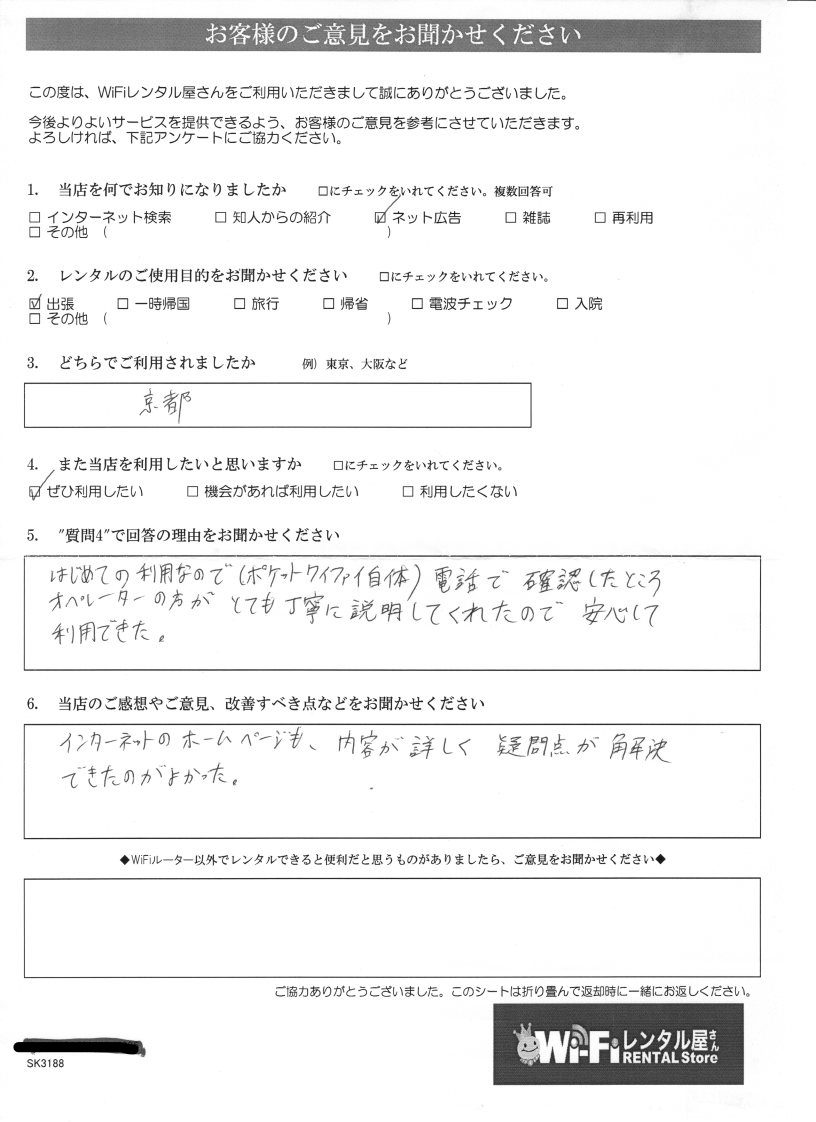 お客様のご意見をお聞かせください
この度は、WiFiレンタル屋さんをご利用いただきまして誠にありがとうございました。
今後よりよいサービスを提供できるよう、お客様のご意見を参考にさせていただきます。
よろしければ、下記アンケートにご協力ください。
1. 当店を何でお知りになりましたか □にチェックをいれてください。複数回答可
□ インターネット検索 □ 知人からの紹介 ☑ ネット広告 □ 雑誌 □ 再利用
□ その他 ( )
2. レンタルのご使用目的をお聞かせください □にチェックをいれてください。
☑ 出張 □ 一時帰国 □ 旅行 □ 帰省 □ 電波チェック □ 入院
□ その他 ( )
3. どちらでご利用されましたか 例) 東京、大阪など
京都
4. また当店を利用したいと思いますか □にチェックをいれてください。
☑ ぜひ利用したい □ 機会があれば利用したい □ 利用したくない
5. "質問4"で回答の理由をお聞かせください
はじめての利用なので(ポケットワイファイ自体)電話で確認したところ
オペレーターの方がとても丁寧に説明してくれたので安心して
利用できた。
6. 当店のご感想やご意見、改善すべき点などをお聞かせください
インターネットのホームページも、内容が詳しく疑問点が解決
できたのがよかった。
◆WiFiルーター以外でレンタルできると便利だと思うものがありましたら、ご意見をお聞かせください◆
ご協力ありがとうございました。このシートは折り畳んで返却時に一緒にお返しください。
Wi-Fiレンタル屋さん
RENTAL Store
SK3188